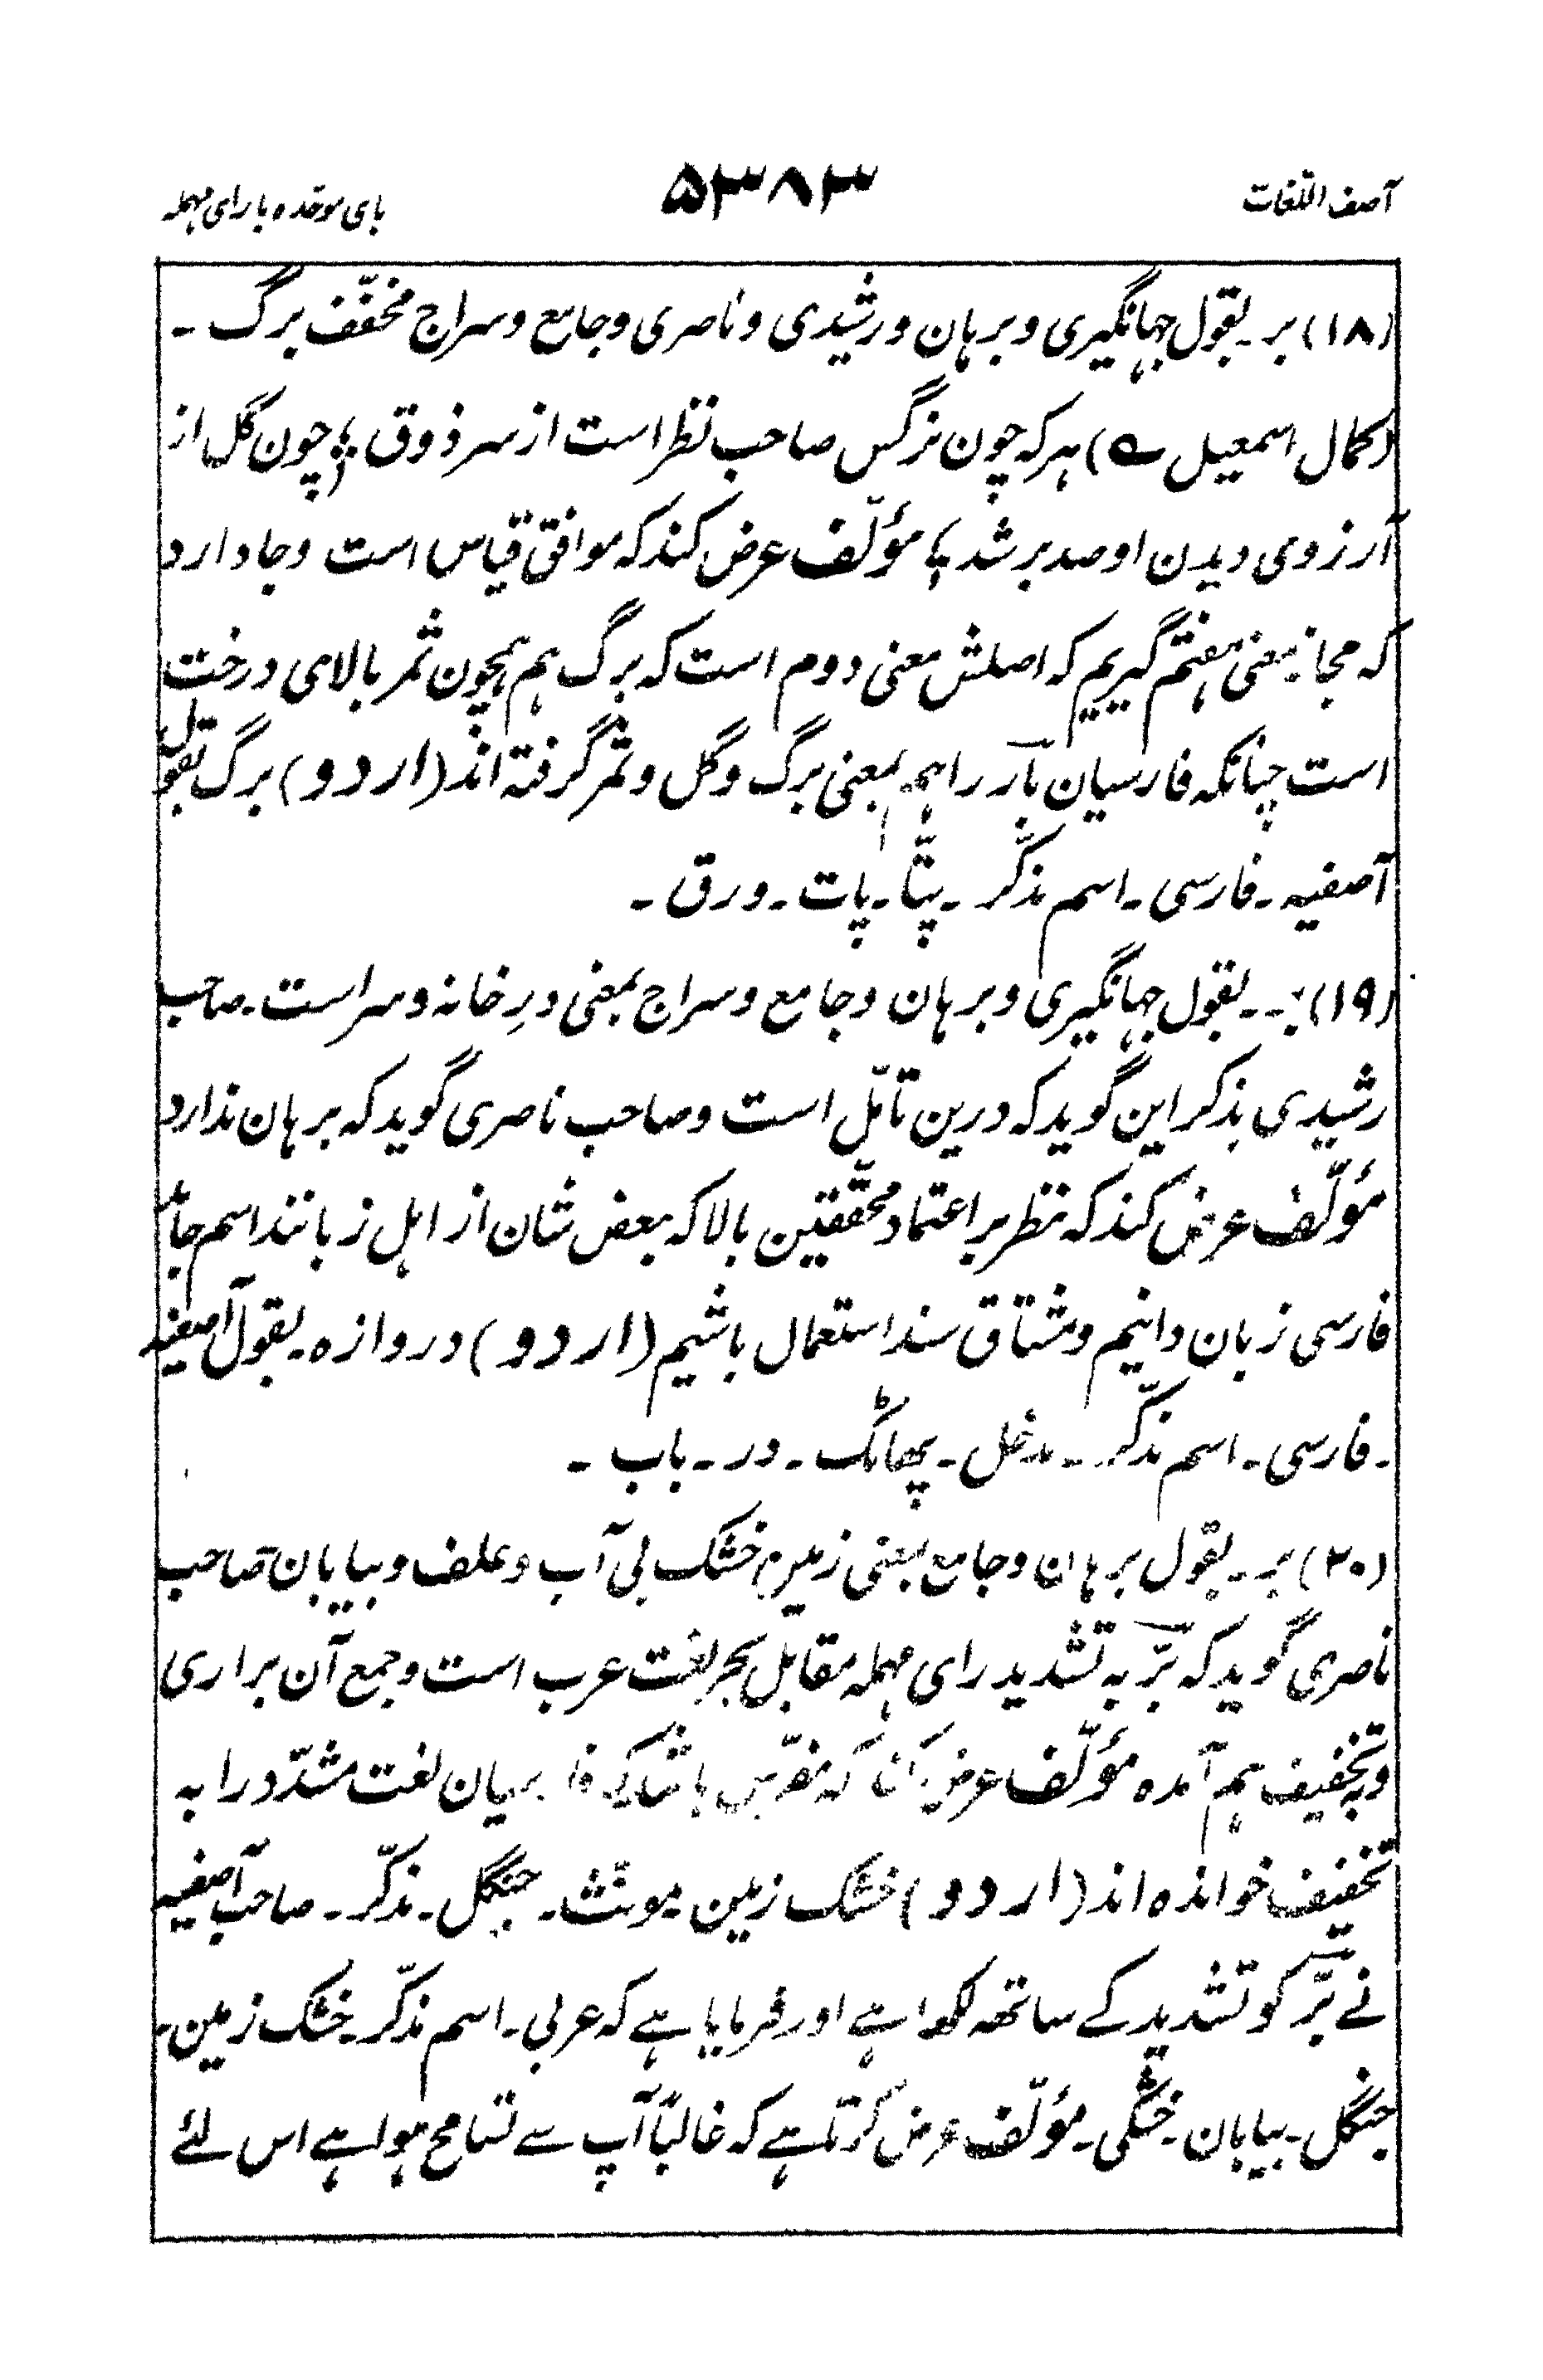 آصف اللغات
۵۳۸۳
بای موحّده با رای مہملہ
(۱۸) بر۔ بقول جہانگیری و برہان و رشیدی و ناصری و جامع و سراج مخفّف برگ ۔
(کمال اسمعیل ؎) ہر کہ چون نرگس صاحب نظر است از سر ذوق ؛ چون گل از
آرزوی دیدن او صد بر شد ؛ مؤلّف عرض کند کہ موافق قیاس است و جا دارد
کہ مجاز معنی ہفتم گیریم کہ اصلش معنی دوم است کہ برگ ہم ہمچون ثمر بالای درخت
است چنانکہ فارسیان بار را ہم بمعنی برگ و گل و ثمر گرفتہ اند (اردو) برگ بقول
آصفیہ ۔ فارسی ۔ اسم مذکّر ۔ پتّا ۔ پات ۔ ورق ۔
(۱۹) بر ۔ بقول جہانگیری و برہان و جامع و سراج بمعنی درِ خانہ و سراست ۔ صاحب
رشیدی بذکر این گوید کہ درین تأمّل است و صاحب ناصری گوید کہ برہان ندارد
مؤلّف عرض کند کہ نظر بر اعتماد محقّقین بالا کہ بعض شان از اہل زبانند اسم جامد
فارسی زبان دانیم و مشتاق سند استعمال باشیم (اردو) دروازہ ۔ بقول آصفیہ
۔ فارسی ۔ اسم مذکّر ۔ مدخل ۔ پھاٹک ۔ در ۔ باب ۔
(۲۰) بر ۔ بقول برہان و جامع بمعنی زمین خشک بی آب و علف و بیابان صاحب
ناصری گوید کہ برّ بہ تشدید رای مہملہ مقابل بحر لغت عرب است و جمع آن براری
و بتخفیف ہم آمدہ مؤلّف عرض کند کہ مفرّس باشد کہ فارسیان لغت مشدّد را بہ
تخفیف خواندہ اند (اردو) خشک زمین ۔ مونّث ۔ جنگل ۔ مذکّر ۔ صاحب آصفیہ
نے برّ کو تشدید کے ساتھہ لکھا ہے اور فرمایا ہے کہ عربی ۔ اسم مذکّر ۔ خشک زمین ۔
جنگل ۔ بیابان ۔ خشکی ۔ مؤلّف عرض کرتا ہے کہ غالباً آپ سے تسامح ہوا ہے اس لئے